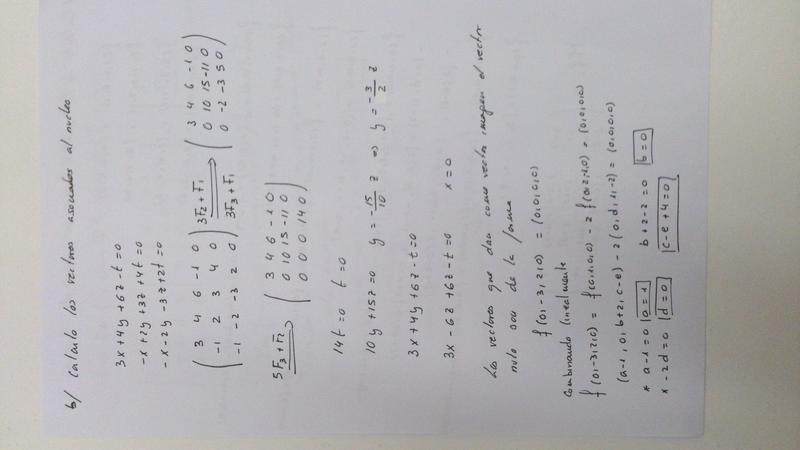 b/ Calculo los vectores asociados al nucleo
3x+4y+6z-t=0
-x+2y+3z+4t=0
-x-2y-3z+2t=0
( 3 4 6 -1 0
-1 2 3 4 0
-1 -2 -3 2 0 ) 3F2+F1 3F3+F1 ⇒ ( 3 4 6 -1 0
0 10 15 -11 0
0 -2 -3 5 0 )
5F3+F2 ⇒ ( 3 4 6 -1 0
0 10 15 -11 0
0 0 0 14 0 )
14t=0 t=0
10y+15z=0 y=-15/10 z ⇒ y=-3/2 z
3x+4y+6z-t=0
3x-6z+6z-t=0 x=0
Los vectores que dan como vector imagen el vector
nulo son de la forma
f(0,-3,2,0) = (0,0,0,0)
Combinando linealmente
f(0,-3,2,0) = f(0,1,0,0) - 2 f(0,2,-1,0) = (0,0,0,0)
(a-1, 0, b+2, c-e) - 2(0,d,1,-2) = (0,0,0,0)
* a-1=0 a=1 b+2-2=0 b=0
x -2d=0 d=0 c-e+4=0